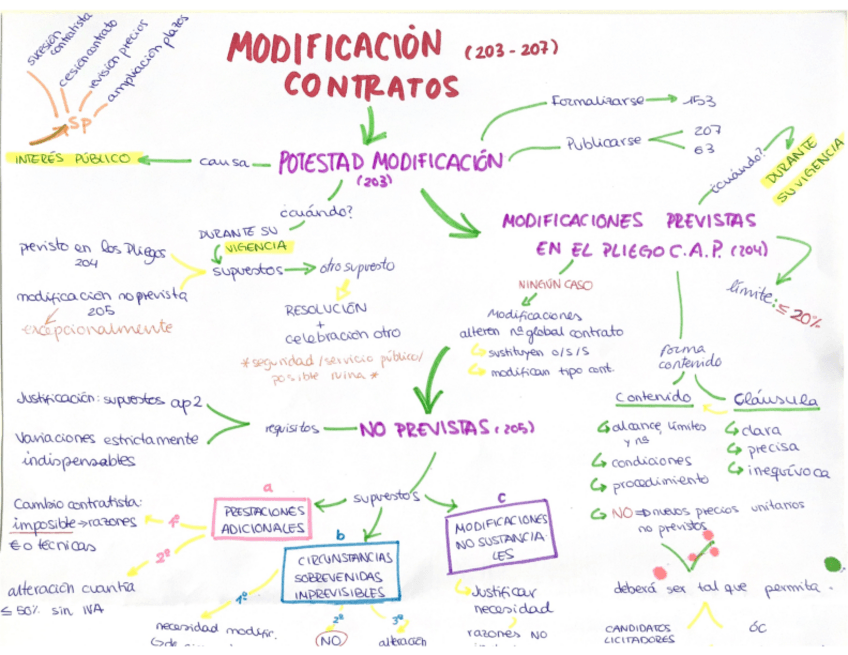 sucesión
contratista
cesión contrato
revisión precios
ampliación plazos
SP
MODIFICACIÓN (203-207)
CONTRATOS
Formalizarse → 153
Publicarse
207
63
INTERÉS PÚBLICO
causa
POTESTAD MODIFICACIÓN
(203)
¿cuándo?
DURANTE
SU VIGENCIA
¿cuándo?
DURANTE SU
VIGENCIA
previsto en los Pliegos
204
supuestos → otro supuesto
modificación no prevista
205
excepcionalmente
RESOLUCIÓN
+
celebración otro
*seguridad/servicio público/
posible ruina*
MODIFICACIONES PREVISTAS
EN EL PLIEGO C.A.P. (204)
límite: ≤ 20%
NINGÚN CASO
Modificaciones
alteren nª global contrato
sustituyen o/s/s
modifican tipo cont.
forma
contenido
Contenido
alcance, límites
y nª
condiciones
procedimiento
NO ⇒ nuevos precios unitarios
no previstos
Cláusula
clara
precisa
inequívoca
deberá ser tal que permita
CANDIDATOS
LICITADORES
ÓC
Justificación: supuestos ap2
Variaciones estrictamente
indispensables
requisitos
NO PREVISTAS (205)
supuestos
a
PRESTACIONES
ADICIONALES
Cambio contratista:
imposible → razones
€ o técnicas
1º
2º
alteración cuantía
≤ 50% sin IVA
b
CIRCUNSTANCIAS
SOBREVENIDAS
IMPREVISIBLES
1º
2º
3º
necesidad modific.
NO
alteración
c
MODIFICACIONES
NO SUSTANCIA-
LES
Justificar
necesidad
razones NO